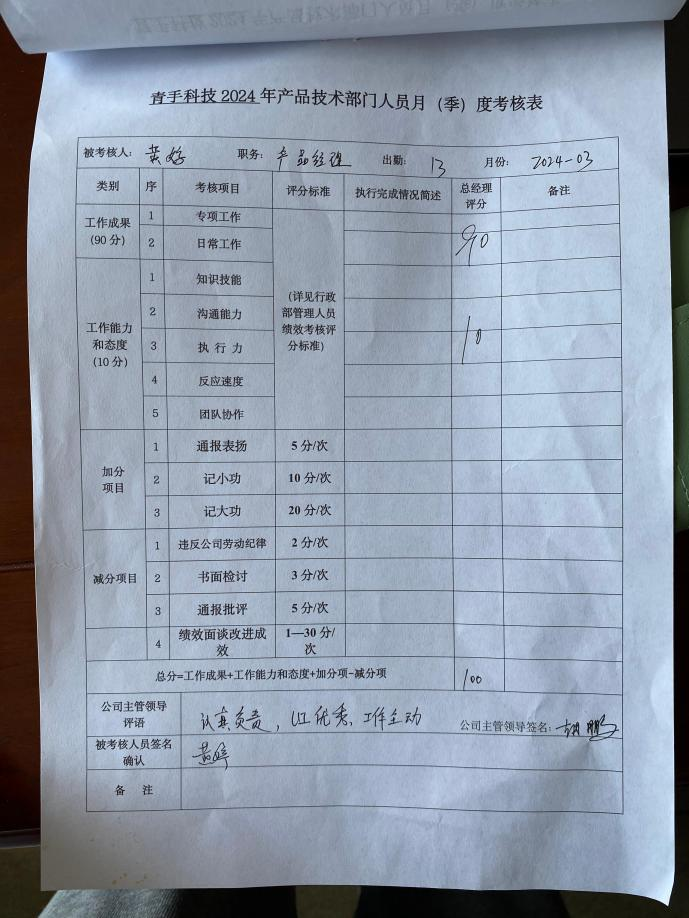 青手科技 2024 年产品技术部门人员月（季）度考核表
被考核人： 黄婷 职务： 产品经理 出勤： 13 月份： 2024-03
类别 序 考核项目 评分标准 执行完成情况简述 总经理评分 备注
工作成果（90 分） 1 专项工作
2 日常工作 90
（详见行政部管理人员绩效考核评分标准）
工作能力和态度（10 分） 1 知识技能
2 沟通能力 10
3 执 行 力
4 反应速度
5 团队协作
加分项目 1 通报表扬 5 分/次
2 记小功 10 分/次
3 记大功 20 分/次
减分项目 1 违反公司劳动纪律 2 分/次
2 书面检讨 3 分/次
3 通报批评 5 分/次
4 绩效面谈改进成效 1—30 分/次
总分=工作成果+工作能力和态度+加分项-减分项 100
公司主管领导评语 认真负责，UI优秀，工作主动 公司主管领导签名：胡鹏
被考核人员签名确认 黄婷
备 注